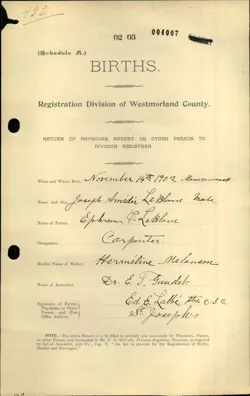 422
02 03 004007
(Schedule A.)
BIRTHS.
Registration Division of Westmorland County.
RETURN OF PHYSICIAN, PARENT OR OTHER PERSON TO
DIVISION REGISTRAR.
When and Where Born, November 14th 1902 Memramcook
Name and Sex, Joseph Amédée LeBlanc Male
Name of Father, Ephrem P. LeBlanc
Occupation, Carpenter
Maiden Name of Mother, Herméline Melanson
Name of Accoucheur, Dr. E. T. Gaudet
Signature of Parent,
Physician, or Other
Person, and Post
Office Address
Ed. E. Labbé C.S.C.
St. Joseph's
NOTE.—The above Return is to be filled in carefully and accurately by Physician, Parent,
or other Person, and forwarded to Division Registrar, Moncton, as required
by Act of Assembly, "An Act to provide for the Registration of Births,
Deaths and Marriages."